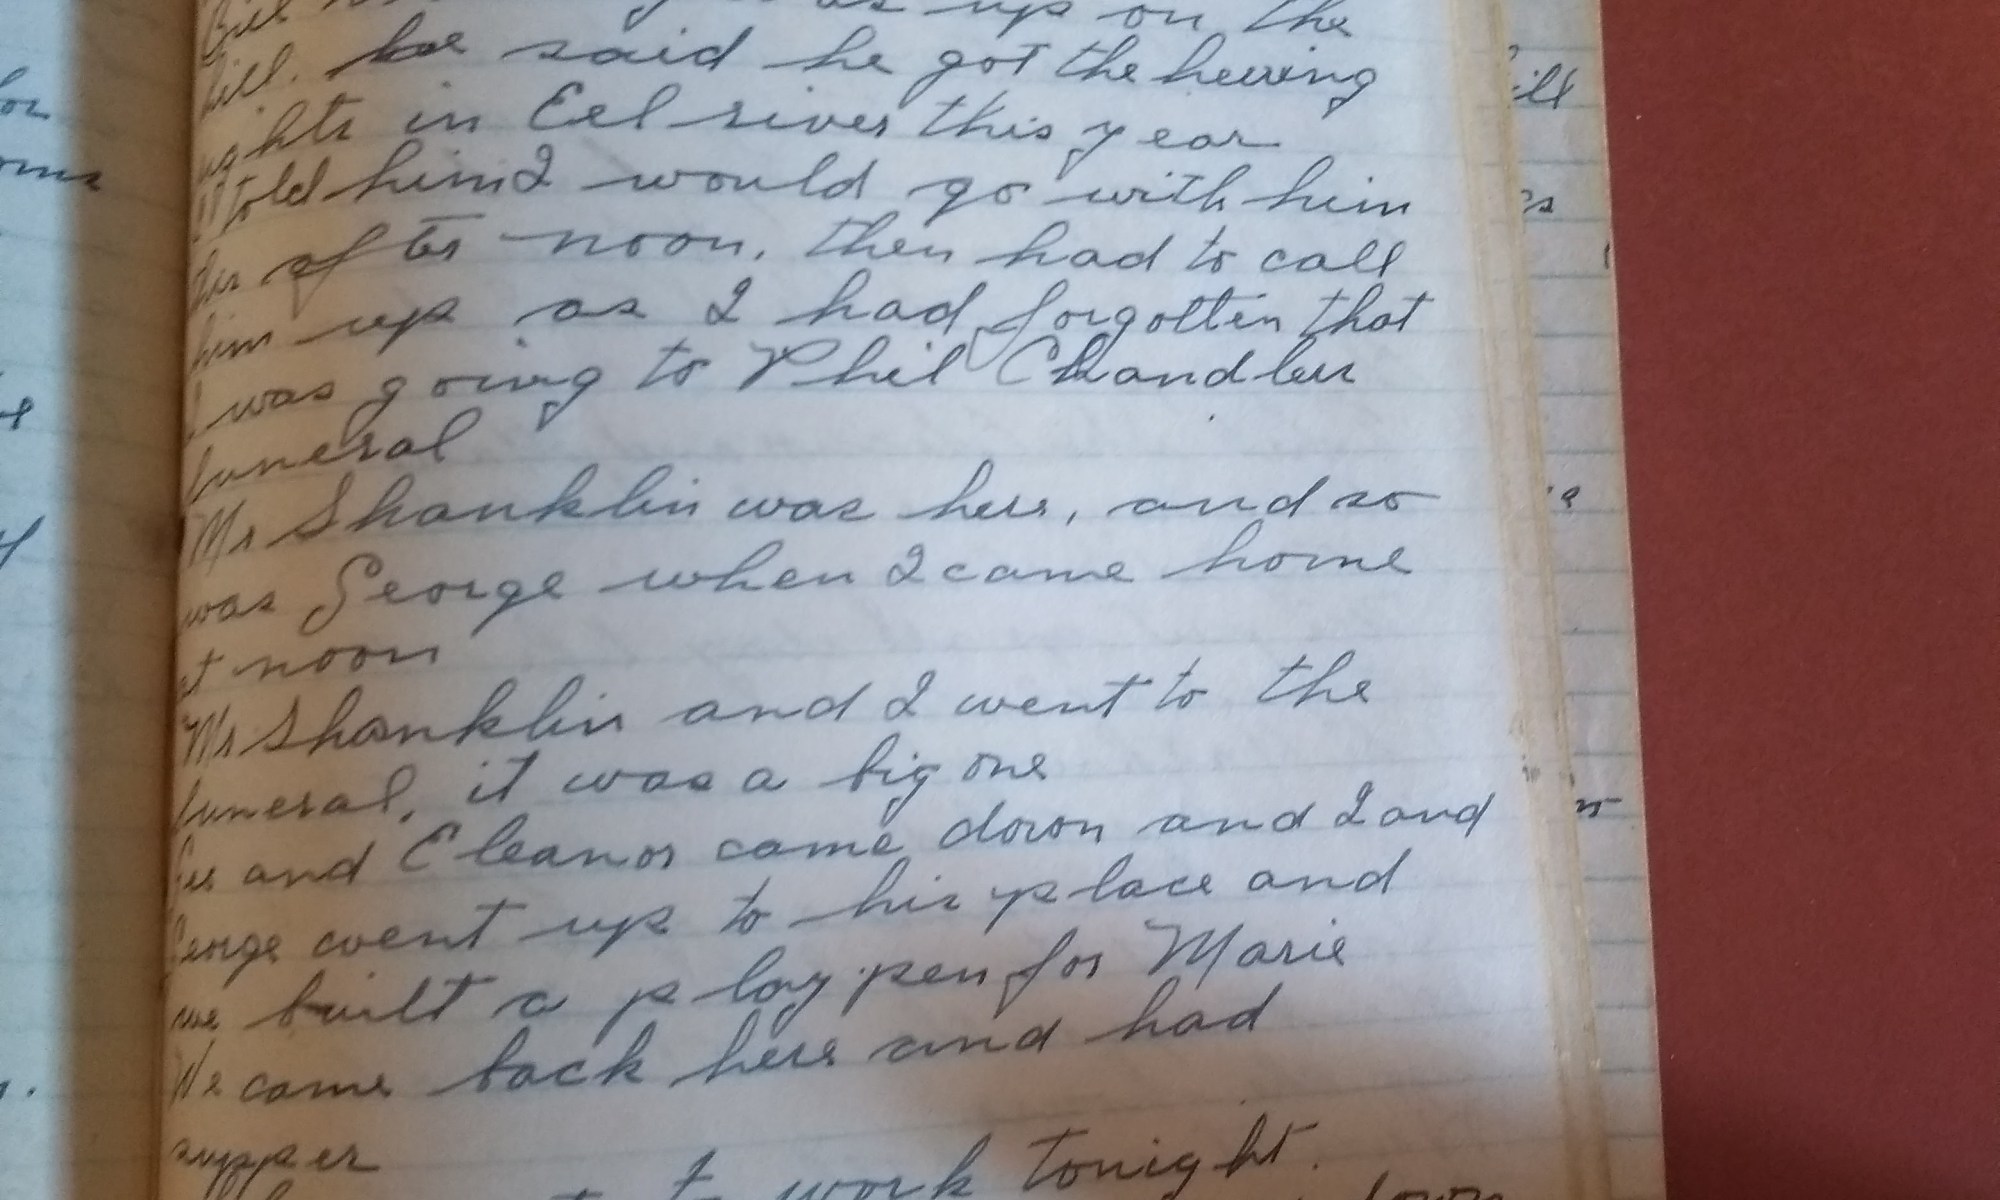 up on the
hill. he said he got the hering
rights in Eel river this year
I told him I would go with him
this after noon, then had to call
him up as I had forgotten that
I was going to Phil Chandlers
funeral
Mr Shanklin was here, and so
was George when I came home
at noon
Mr Shanklin and I went to the
funeral, it was a big one
and Eleanor came down and I and
George went up to his place and
we built a play pen for Marie
We came back here and had
supper
to work tonight.
down